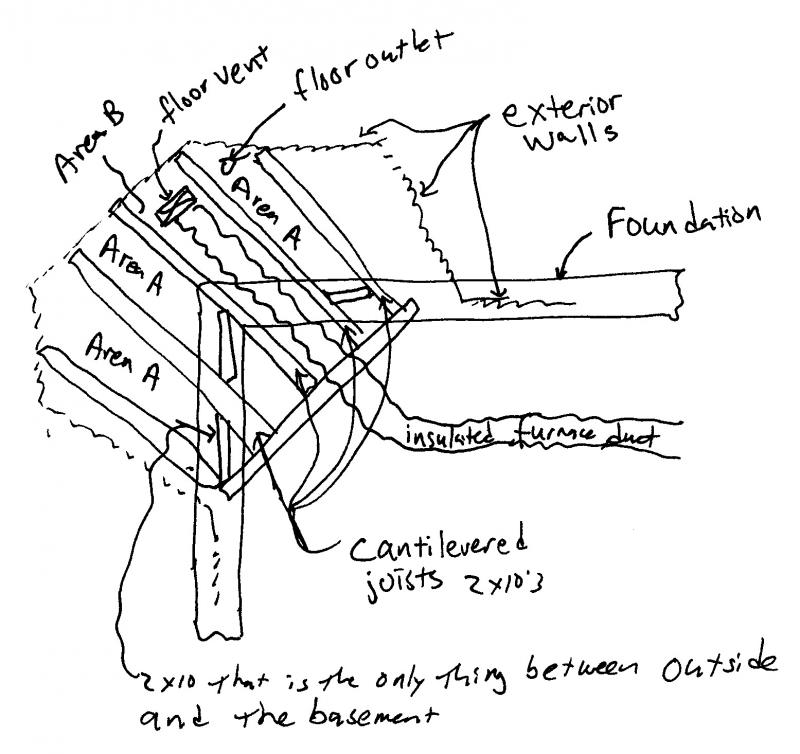 floor outlet
floor vent
exterior
walls
Area B
Area A
Foundation
Area A
Area A
insulated furnace duct
Cantilevered
joists 2x10's
2x10 that is the only thing between outside
and the basement